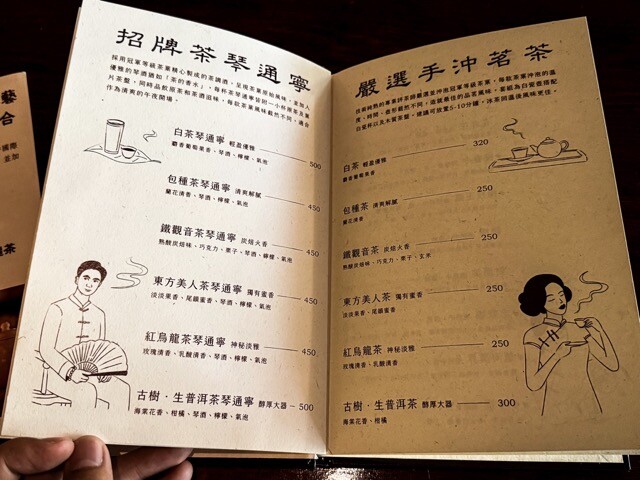 招牌茶琴通寧
採用冠軍等級茶葉精心製成的茶調酒，呈現茶葉原始風味，並加入
優雅的琴酒猶如「茶的香水」，每杯茶琴通寧皆附一小杯原茶及葉
片茶盤，同時品飲原茶和茶酒滋味，每款茶葉風味截然不同，適合
作為清爽的午夜開場。
白茶琴通寧 輕盈優雅 500
麝香葡萄果香、琴酒、檸檬、氣泡
包種茶琴通寧 清爽解膩 450
蘭花清香、琴酒、檸檬、氣泡
鐵觀音茶琴通寧 炭焙火香 450
熟酸炭焙味、巧克力、栗子、琴酒、檸檬、氣泡
東方美人茶琴通寧 獨有蜜香 450
淡淡果香、尾韻蜜香、琴酒、檸檬、氣泡
紅烏龍茶琴通寧 神秘淡雅 450
玫瑰清香、乳酸清香、琴酒、檸檬、氣泡
古樹・生普洱茶琴通寧 醇厚大器 500
海棠花香、柑橘、琴酒、檸檬、氣泡
嚴選手沖茗茶
技術純熟的專業評茶師嚴選並沖泡冠軍等級茶葉，每款茶葉沖泡的溫
白瓷杯以及木質茶盤，建議可放置5-10分鐘，冷茶同溫後風味更佳。
白茶 輕盈優雅 320
麝香葡萄果香
包種茶 清爽解膩 250
蘭花清香
鐵觀音茶 炭焙火香 250
熟酸炭焙味、巧克力、栗子、玄米
東方美人茶 獨有蜜香 250
淡淡果香、尾韻蜜香
紅烏龍茶 神秘淡雅 250
玫瑰清香、乳酸清香
古樹・生普洱茶 醇厚大器 300
海棠花香、柑橘